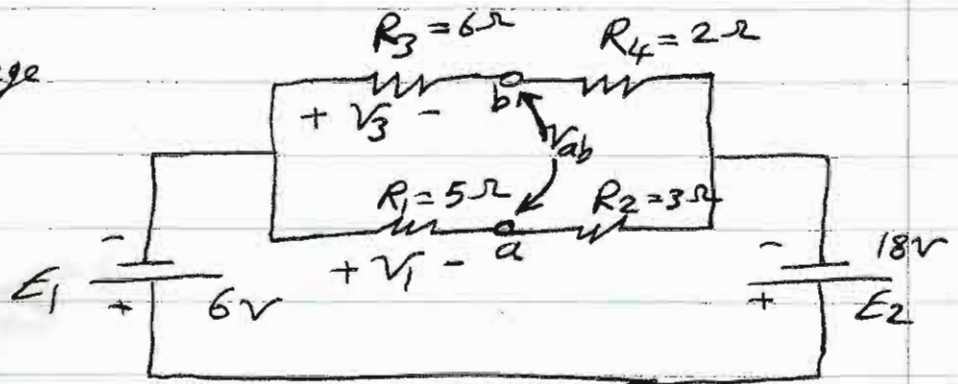 R3 = 6Ω R4 = 2Ω
+ V3 - b
Vab
R1 = 5Ω R2 = 3Ω
+ V1 - a
- - 18V
E1 + 6V + E2